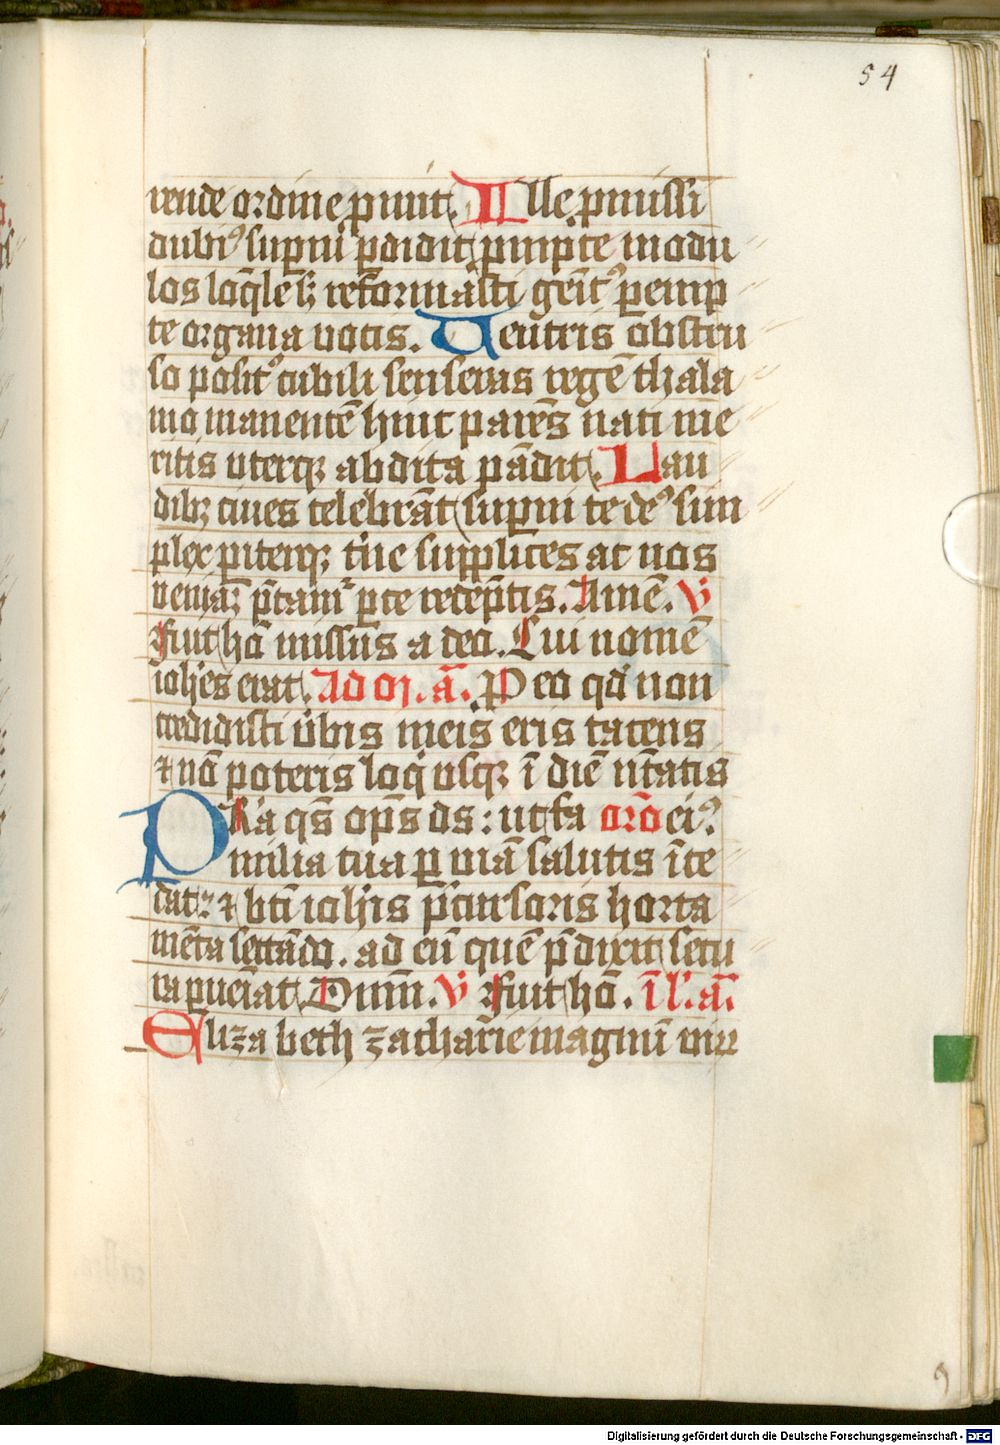 54
rende ordine ꝓmit. Ille ꝓmissi
dubiꝰ supni pdidit ꝓmpte modu
los loq̄le sꝫ reformasti genitꝰ pemp
te organa vocis. Uentris obstru
so positꝰ cubili senseras regē thala
mo manentē hinc parēs nati me
ritis uterqꝫ abdita pādit. Lau
dibꝫ ciues celebrāt supni te deꝰ sim
plex pariterqꝫ t'ne supplices ac nos
veniaꝫ p̄camᷣ pce redēptis. Amē. V
Fuit hō missus a deo. Cui nomē
ioh̄es erat. Ad or. ā. P eo qd' non
credidisti v̄bis meis eris tacens
⁊ nō poteris loqͥ usqꝫ ī diē natiuitatis
P Ra qs̄ op̄s ds: ut fa orō eiꝰ
milia tua ꝑ viā salutis īce
dat ⁊ bt̄i ioh̄is p̄cursoris horta
mēta sectādo. ad eū quē p̄dixit secu
ra ꝑueniat. Dnm̄. V Fuit hō. ī l'. ā.
Elizabeth zacharie magnū viꝝ
Digitalisierung gefördert durch die Deutsche Forschungsgemeinschaft - DFG